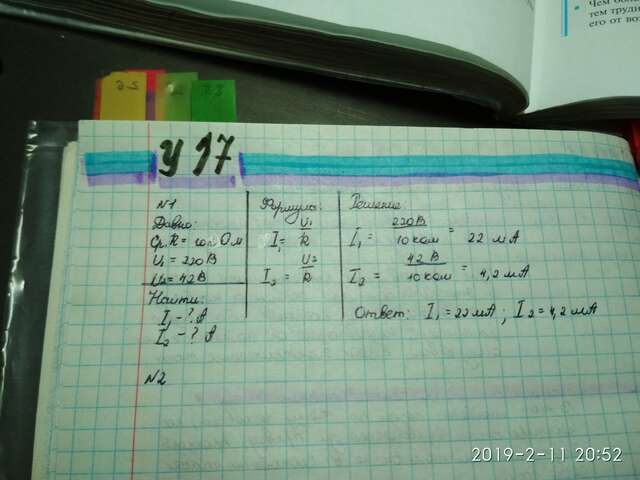 Чем бол
тем труди
его от во
У 17
N1
Дано:
Ср. R = 10к Ом
U₁ = 220 В
U₂ = 42 В
Найти:
I₁ - ? А
I₂ - ? А
Формулы:
I₁ = U₁/R
I₂ = U₂/R
Решение:
I₁ = 220 В / 10 ком = 22 мА
I₂ = 42 В / 10 ком = 4,2 мА
Ответ: I₁ = 22 мА ; I₂ = 4,2 мА
N2
2019-2-11 20:52